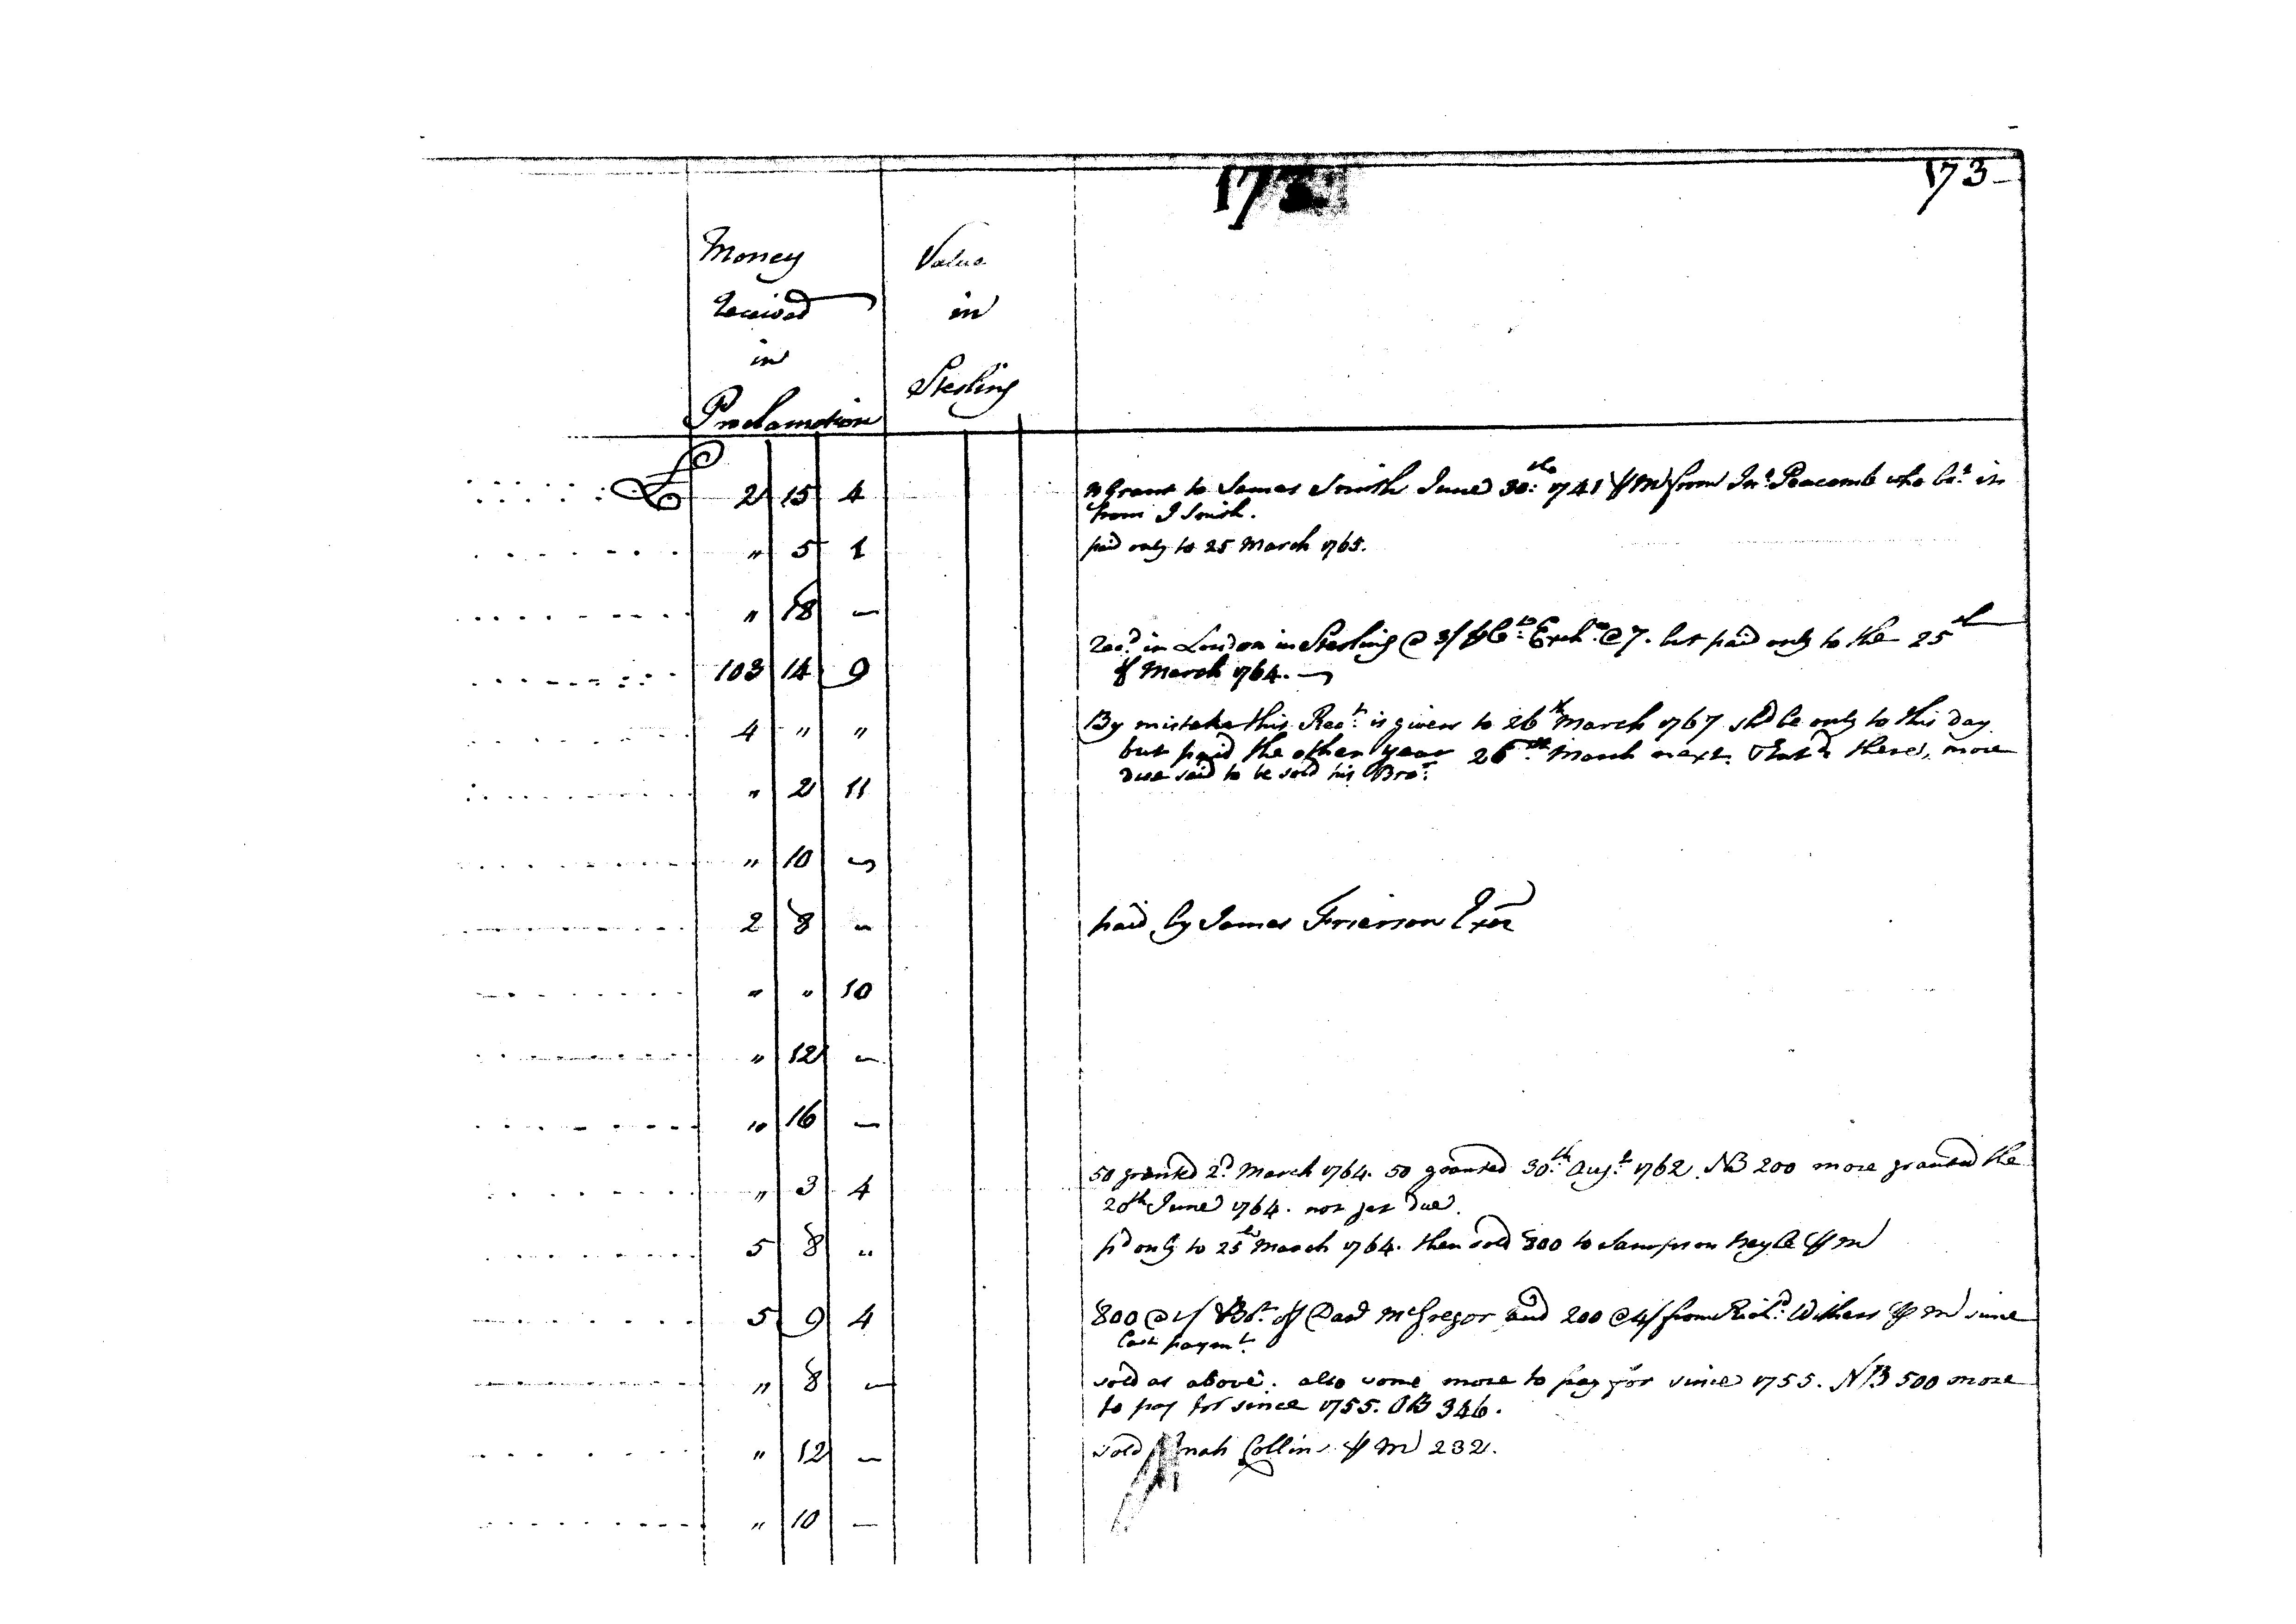 173 173
Money Value
received in
in Sterling
Proclamation
£ 2 15 4 Grant to James Smith June 30th 1741 from Jn.o Peacomb who bo.t it
from J Smith.
" 5 1 paid only to 25 March 1765.
" 18 —
Rec.d in London in Sterling @ 3/ Exch.a @ 7. but paid only to the 25th
103 14 9 of March 1764.
4 " " By mistake this Rec.t is given to 26th March 1767 sh.d be only to this day
but paid the other year 26th March next. there's more
due said to be sold his Bro.r
" 2 11
" 10 —
2 8 — paid by James Frierson Exor
" " 10
" 12 —
" 16 —
50 granted 2.d March 1764. 50 granted 30.th Aug.t 1762. NB 200 more granted the
" 3 4 20th June 1764. not yet due.
5 8 " p.d only to 25th March 1764. then sold 800 to Sampson Neyle M
5 9 4 800 @ of Dav.d McGregor and 200 @ 4/ from Rich.d Withers M since
last paym.t
" 8 — sold as above. also some more to pay for since 1755. NB 500 more
to pay for since 1755. OB 346.
" 12 — sold Jonah Collins M 232.
" 10 —